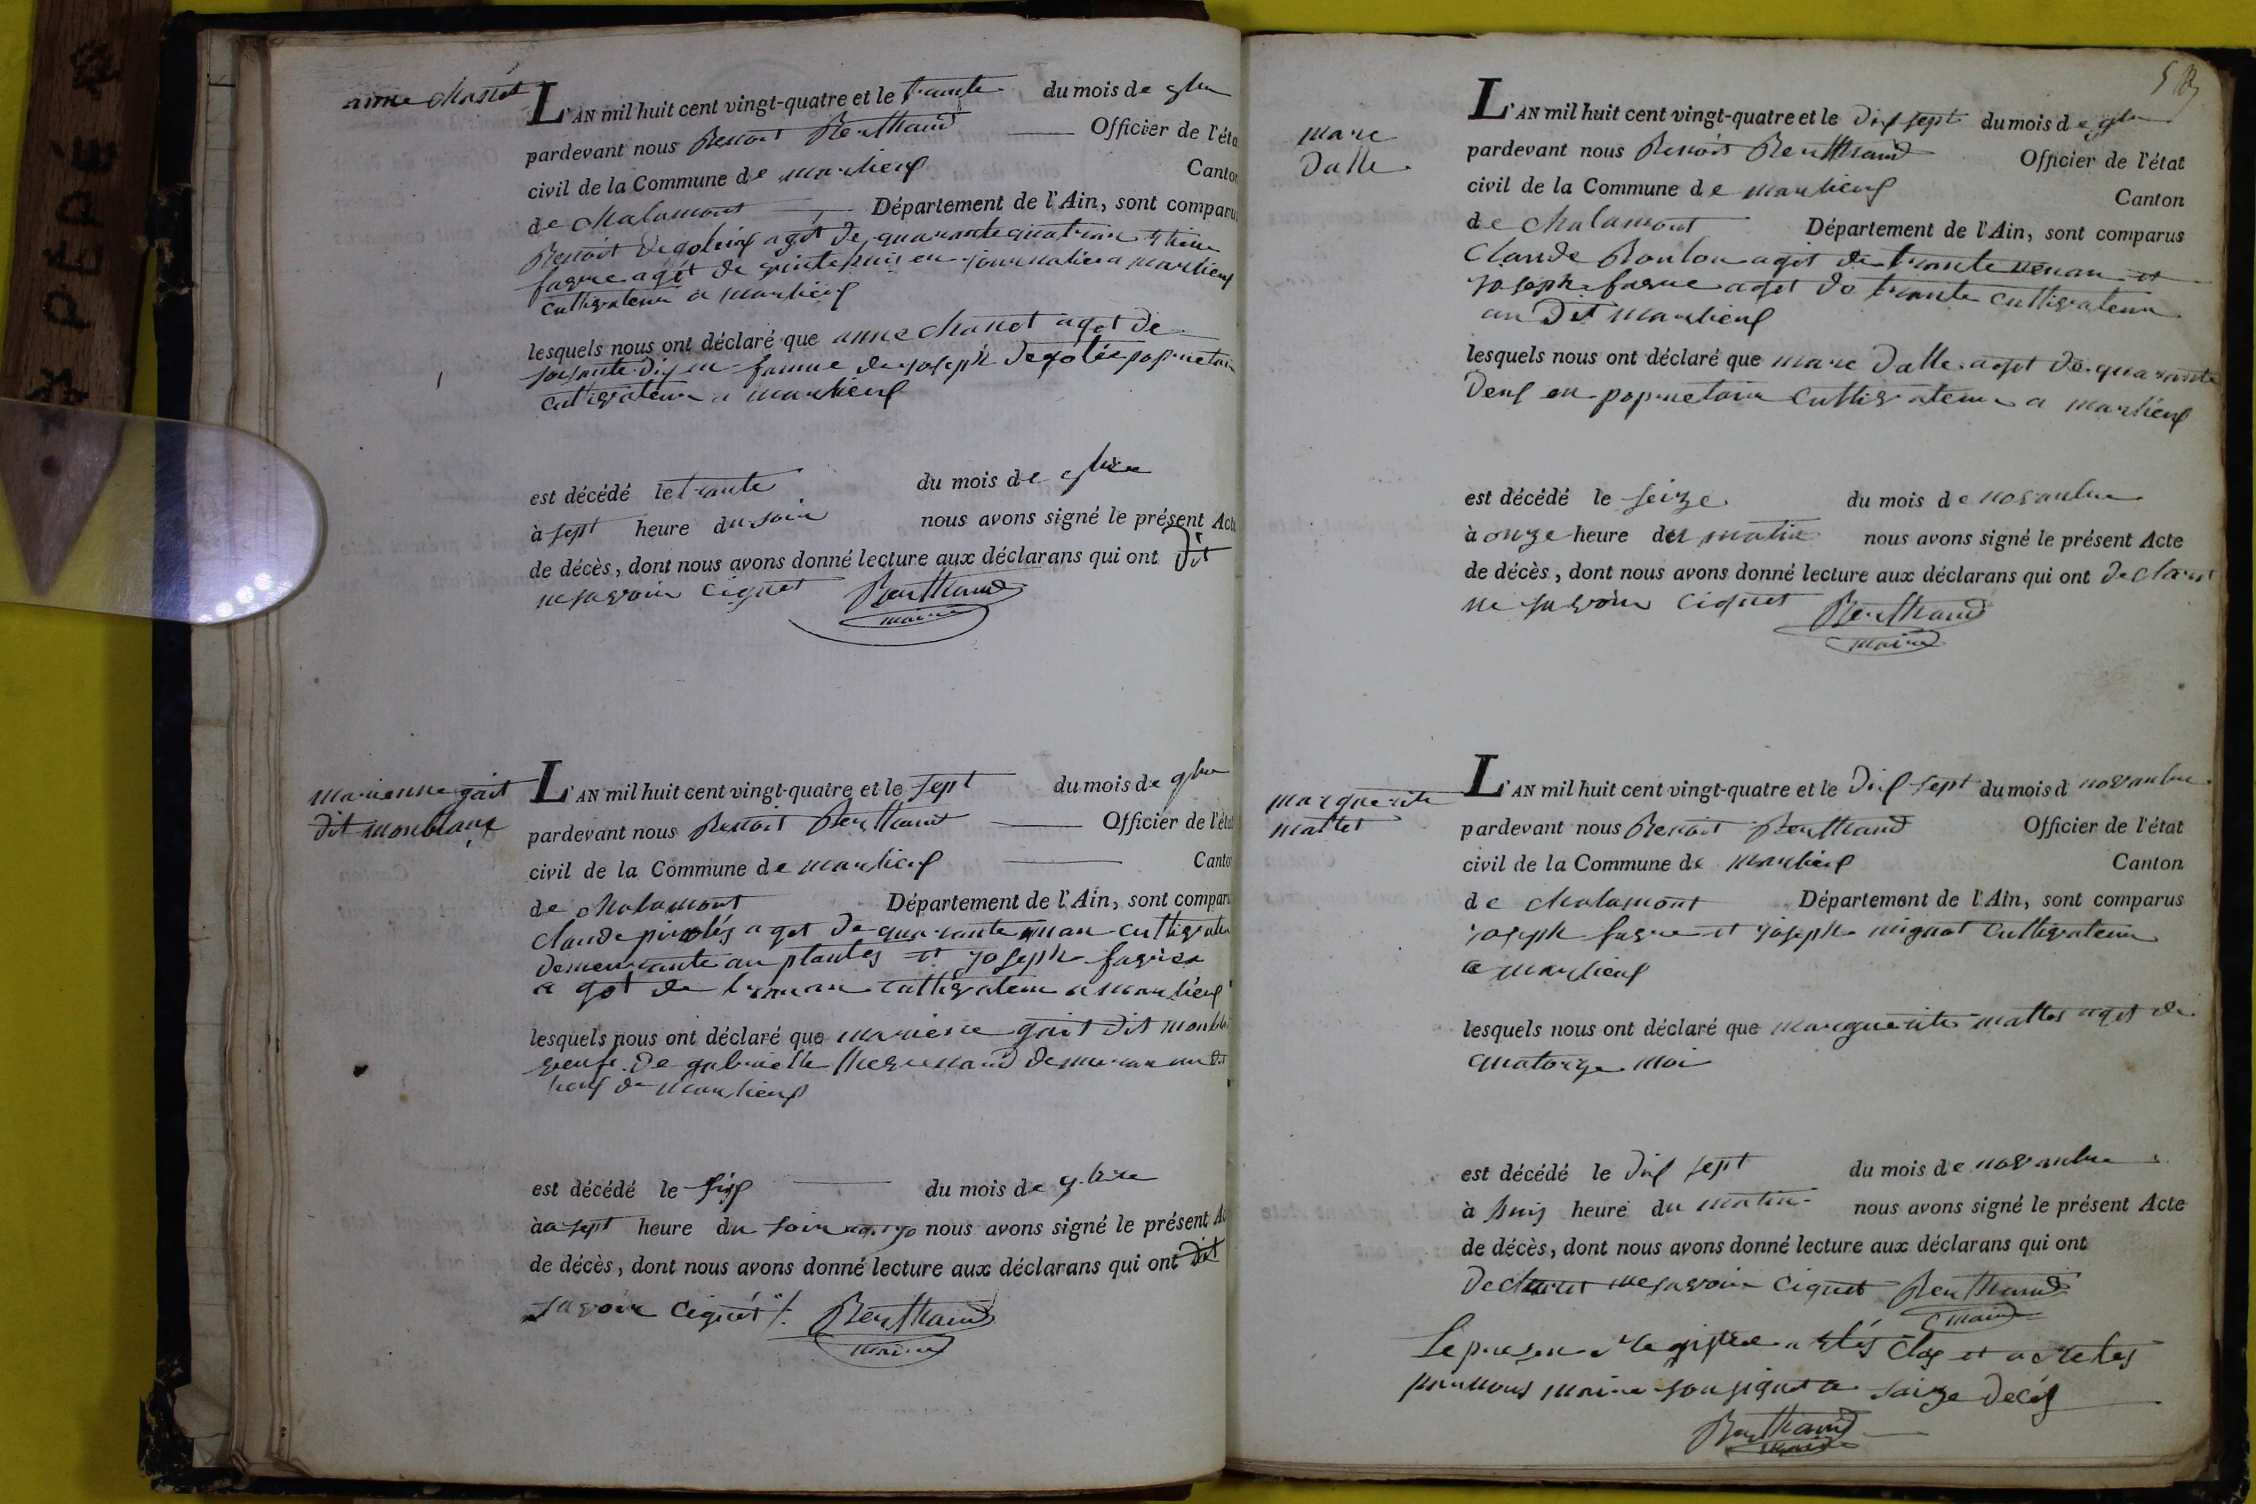 anne Chanet
L'AN mil huit cent vingt-quatre et le trante du mois de 9bre
pardevant nous Benoit Berthaud Officier de l'éta
civil de la Commune de marlieux Canton
de Chalamont Département de l'Ain, sont comparu
Benoit agét de quarante
favre agét de journalier a marlieux
cultivateur a marlieux
lesquels nous ont déclaré que anne Chanet agét de
soixante dix en famme de joseph popriétair
cultivateur a marlieux
est décédé le trante du mois de 9bre
à sept heure du soir nous avons signé le présent Acte
de décès, dont nous avons donné lecture aux déclarans qui ont dit
ne savoir cignet Berthaud
maire
marienne gait
dit monblanc
L'AN mil huit cent vingt-quatre et le sept du mois de 9bre
pardevant nous Benoit Berthaud Officier de l'éta
civil de la Commune de marlieux Canton
de Chalamont Département de l'Ain, sont comparu
claude agét de quarante cultivateu
demeurante au plantes et joseph favre
agét de cultivateur a marlieux
lesquels nous ont déclaré que mariene gait dit monbl
veuve de gabrielle demeuran au dit
lieux de marlieux
est décédé le six du mois de 9bre
àa sept heure du soir nous avons signé le présent Ac
de décès, dont nous avons donné lecture aux déclarans qui ont dit
savoir cignét Berthaud
maire
marc
Dalle
L'AN mil huit cent vingt-quatre et le dix sept du mois de 9bre
pardevant nous Benoit Berthaud Officier de l'état
civil de la Commune de marlieux Canton
de Chalamont Département de l'Ain, sont comparus
Claude agét de trante et
joseph favre agét de trante cultivateur
au dit marlieux
lesquels nous ont déclaré que marc Dalle agét de quarante
deux en popriétair cultivateur a marlieux
est décédé le seize du mois de novanbre
à onze heure du matin nous avons signé le présent Acte
de décès, dont nous avons donné lecture aux déclarans qui ont declaret
ne savoir cignet Berthaud
maire
marguerite
mattet
L'AN mil huit cent vingt-quatre et le dix sept du mois d novanbre
pardevant nous Benoit Berthaud Officier de l'état
civil de la Commune de marlieux Canton
de Chalamont Département de l'Ain, sont comparus
joseph favre et joseph mignot cultivateur
a marlieux
lesquels nous ont déclaré que marguerite mattet agét de
quatorze moi
est décédé le dix sept du mois de novanbre
à huis heure du matin nous avons signé le présent Acte
de décès, dont nous avons donné lecture aux déclarans qui ont
declaret ne savoir cignet Berthaud
maire
Le presen registre a étés clos et aretés
par nous maire sousignet a saize décés
Berthaud
maire